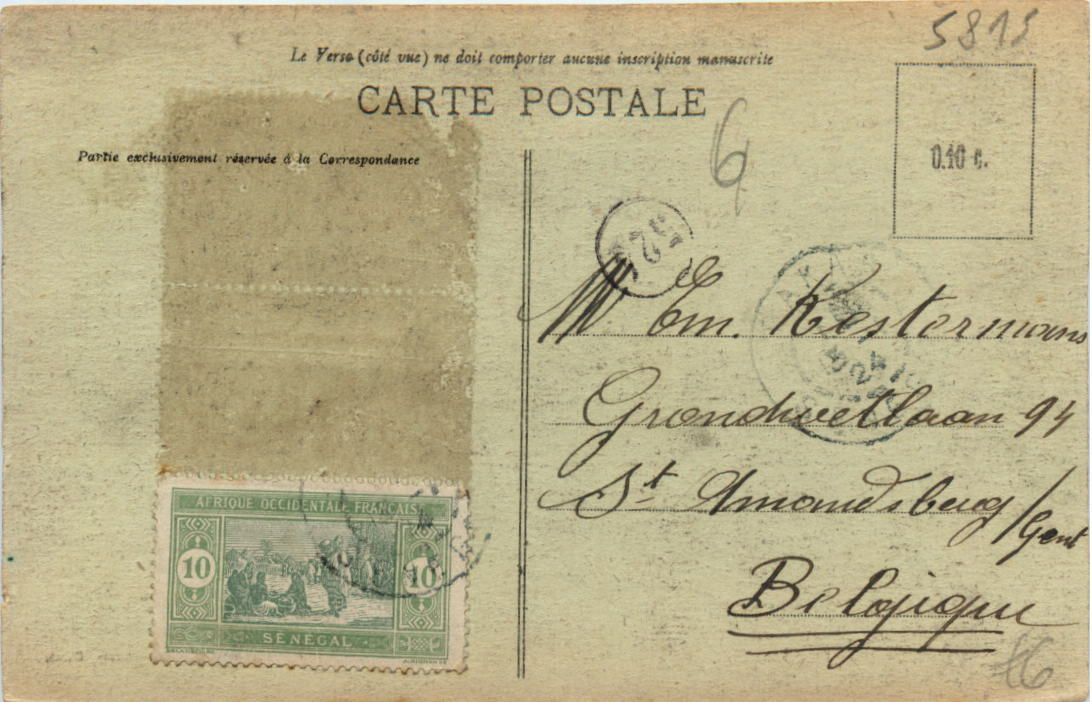 5813
Le Verso (côté vue) ne doit comporter aucune inscription manuscrite
CARTE POSTALE
6
Partie exclusivement réservée à la Correspondance
0.10 c.
32
Mr Em. Kestermans
Grondwetlaan 94
St Amandsberg/Gent
Belgique
AFRIQUE OCCIDENTALE FRANÇAISE
10
10
SÉNÉGAL
46